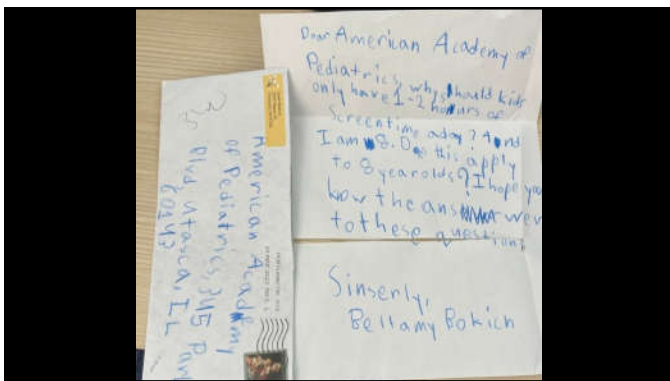 Dear American Academy of
Pediatrics, why should kids
only have 1-2 hours of
screentime aday? And
I am 8. Do this apply
to 8 yearolds? I hope you
know the answer
to these questions
Sinserly,
Bellamy Bokich
American Academy
of Pediatrics, 345 Park
Blvd, Itasca, IL
60143